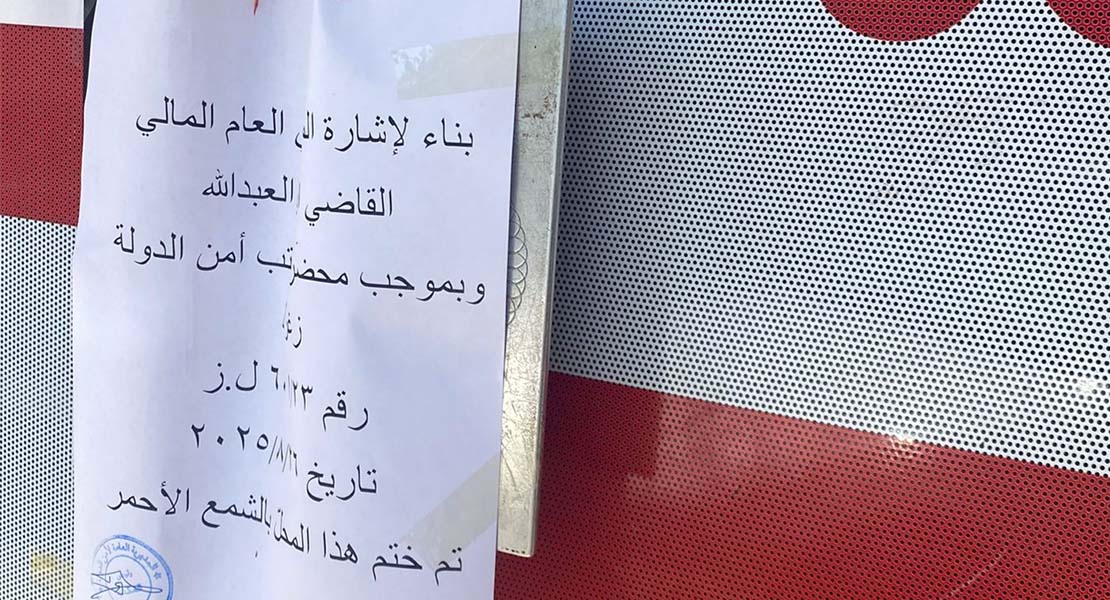 بناء لإشارة العام المالي
القاضي العبدالله
وبموجب محضر أمن الدولة
رقم ل.ز
تاريخ ٢٠٢٥/٨/
تم ختم هذا المحل بالشمع الأحمر
المديرية العامة